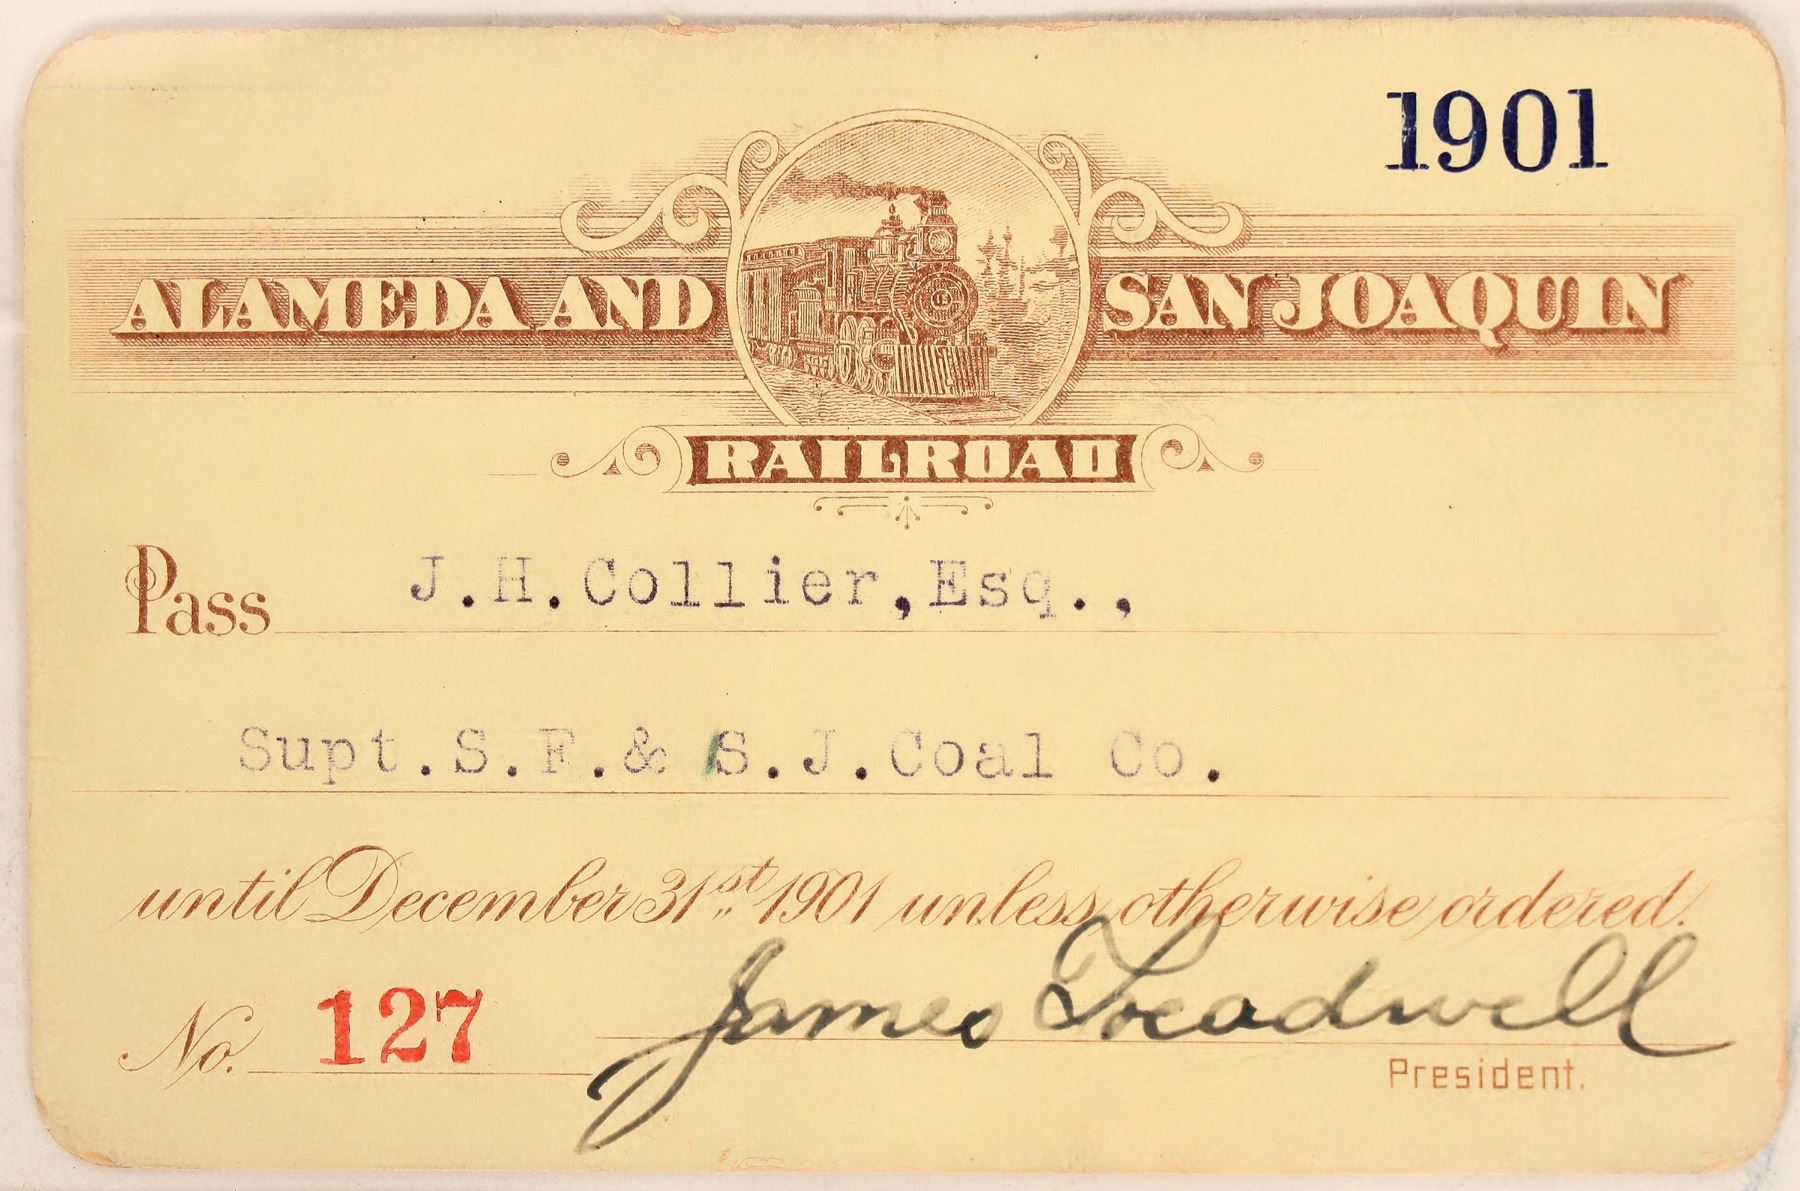 1901
ALAMEDA AND SAN JOAQUIN
RAILROAD
Pass J.H.Collier,Esq.,
Supt.S.F.& S.J.Coal Co.
until December 31st 1901 unless otherwise ordered.
No. 127 James Treadwell
President.